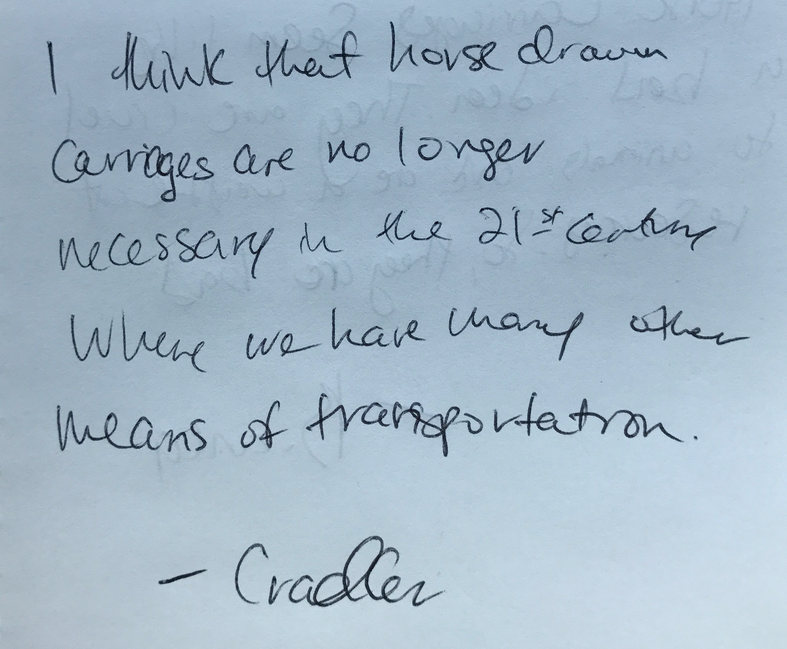 I think that horse drawn
Carriages are no longer
necessary in the 21st Century
Where we have many other
means of transportation.
- Cradler